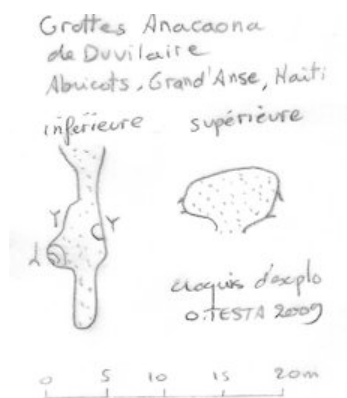 Grottes Anacaona
de Duvilaire
Abricots, Grand'Anse, Haïti
inférieure supérieure
croquis d'explo
O.TESTA 2009
0 5 10 15 20m